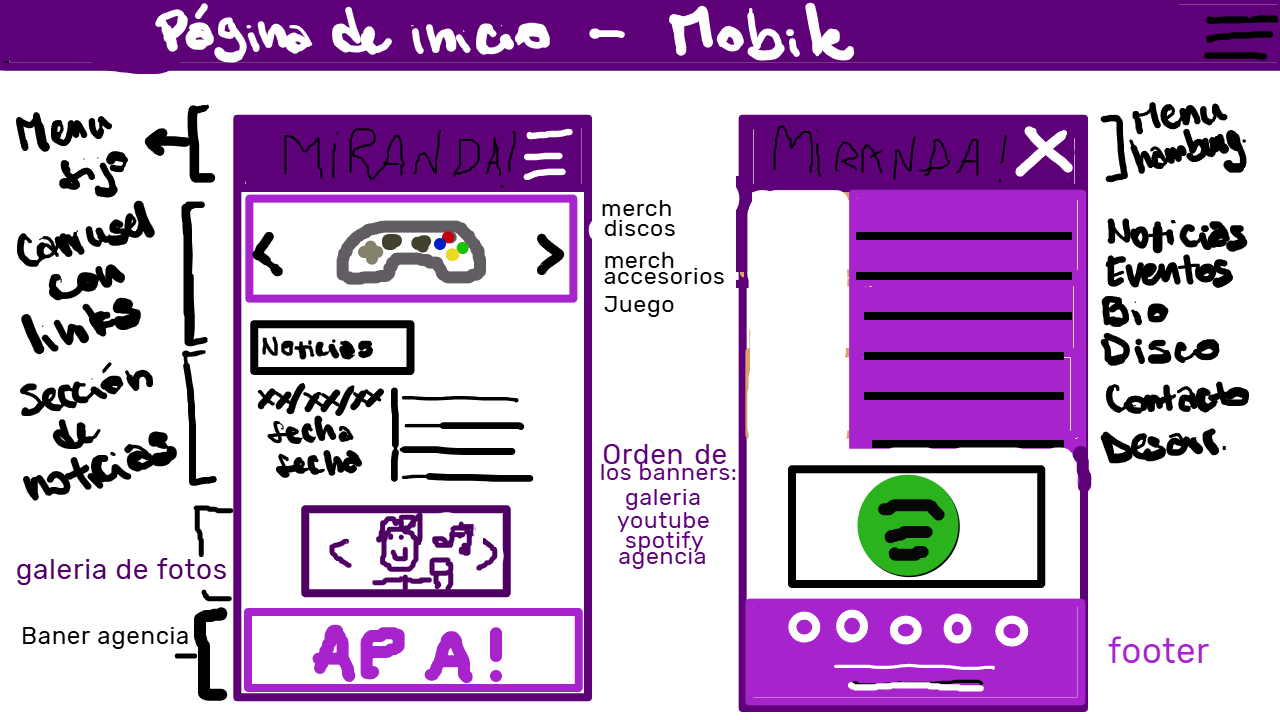 Página de inicio - Mobile
Menu
fijo
Carrusel
con
links
Sección
de
noticias
galeria de fotos
Baner agencia
MIRANDA!
Noticias
xx/xx/xx
fecha
fecha
APA!
merch
discos
merch
accesorios
Juego
Orden de
los banners:
galeria
youtube
spotify
agencia
MIRANDA!
Menu
hamburg.
Noticias
Eventos
Bio
Disco
Contacto
Desarr.
footer